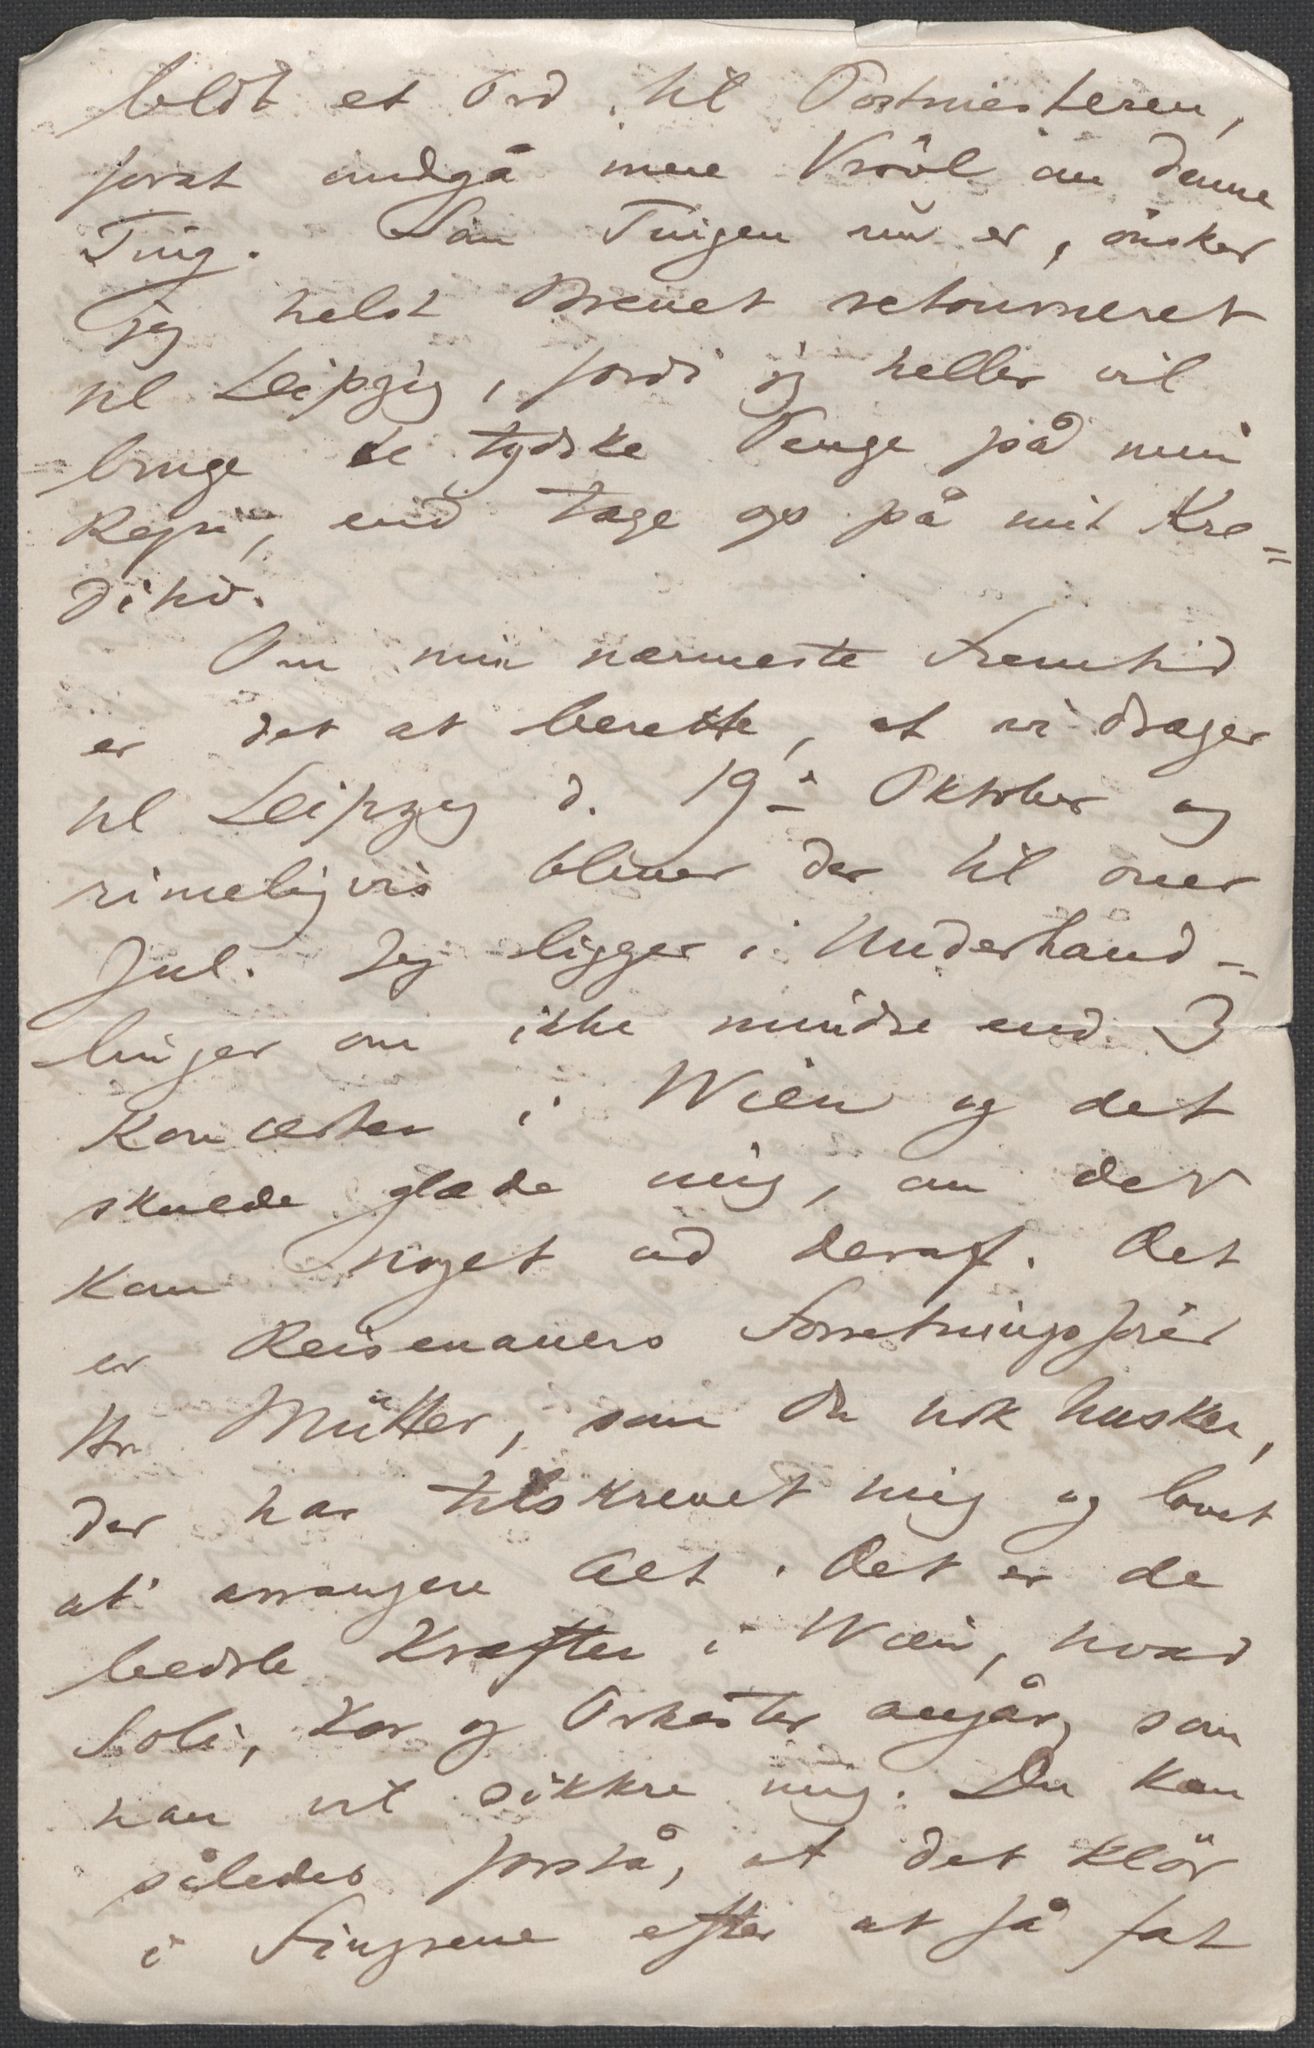 blot et Ord til Postmesteren,
forat undgå mere Vrövl om denne
Ting. Som Tingen nu er, önsker
jeg helst Brevet retourneret
til Leipzig, fordi jeg heller vil
bruge de tydske Penge på min
Rejse, end tage op på mit Kre=
ditiv.
Om min nærmeste Fremtid
er det at berette, at vi drager
til Leipzig d. 19de Oktober og
rimeligvis bliver der til over
Jul. Jeg ligger i Underhand-
linger om ikke mindre end 3
Koncerter i Wien og det
skulde glæde mig, om der
kom noget ud deraf. Det
er Reisenauers Forretningsförer
Hr. Mütter, som Du nok husker,
der har tilskrevet mig og lovet
at arrangere Alt. Det er de
bedste Kræfter i Wien, hvad
Soli, Kor og Orkester angår, som
han vil sikkre mig. Du kan
således forstå, at det klör
i Fingrene efter at få fat